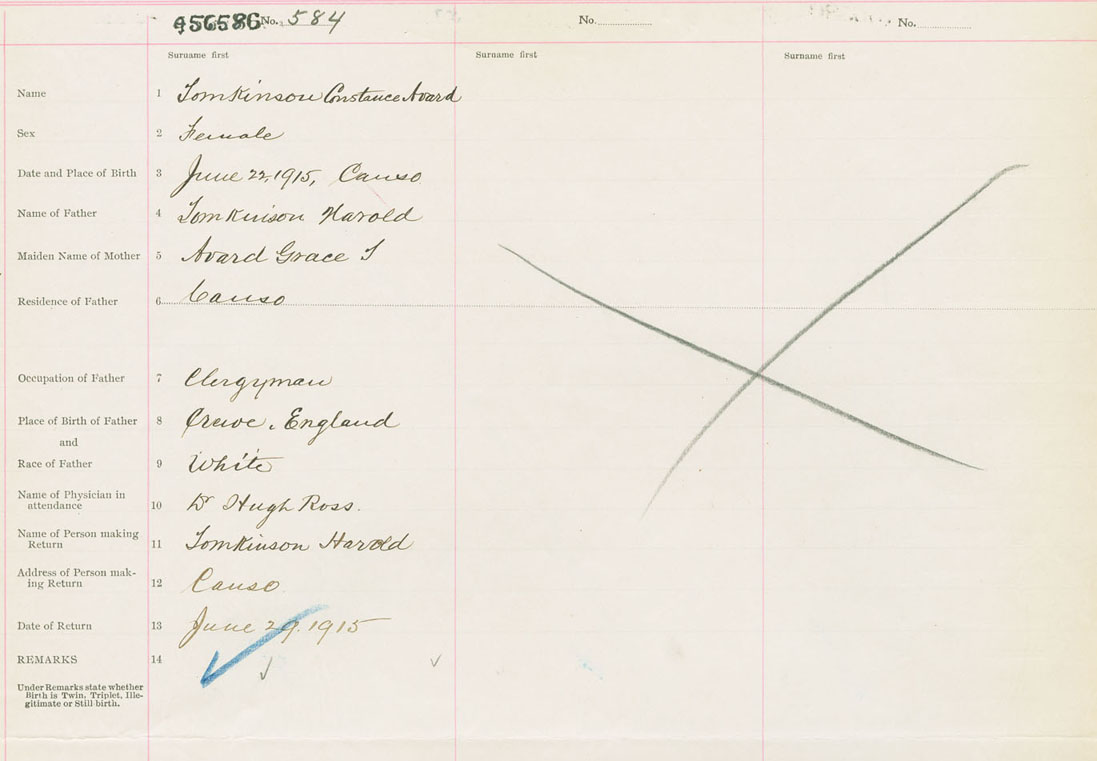 456586 No. 584
No.
No.
Surname first
Surname first
Surname first
Name 1 Tomkinson Constance Avard
Sex 2 Female
Date and Place of Birth 3 June 22, 1915, Canso
Name of Father 4 Tomkinson Harold
Maiden Name of Mother 5 Avard Grace T
Residence of Father 6 Canso
Occupation of Father 7 Clergyman
Place of Birth of Father 8 Crewe, England
and
Race of Father 9 White
Name of Physician in
attendance 10 Dr Hugh Ross.
Name of Person making
Return 11 Tomkinson Harold
Address of Person mak-
ing Return 12 Canso
Date of Return 13 June 29. 1915
REMARKS 14
Under Remarks state whether
Birth is Twin, Triplet, Ille-
gitimate or Still-birth.